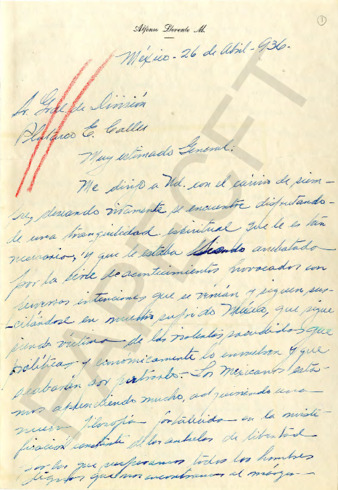 1
Alfonso Llorente M.
México - 26 de Abril - 936.
Sr. Gral de División
Plutarco E. Calles
Muy estimado General:
Me dirijo a Ud. con el cariño de siem-
pre, deseando vivamente se encuentre disfrutando
de una tranquilidad espiritual que le es tan
necesaria, y que le estaba siendo arrebatada
por la serie de acontecimientos provocados con
perversas intenciones que se venían y siguen sus-
citándose en nuestro sufrido México, que sigue
siendo víctima de las violentas sacudidas que
política y económicamente lo envuelven y que
acabarán por partirlo. Los Mexicanos esta-
mos aprendiendo mucho, adquiriendo una
nueva filosofía fortalecida en la mixti-
ficación constante de los anhelos de libertad
por los que suspiramos todos los hombres
dignos que nos
FAPECFT